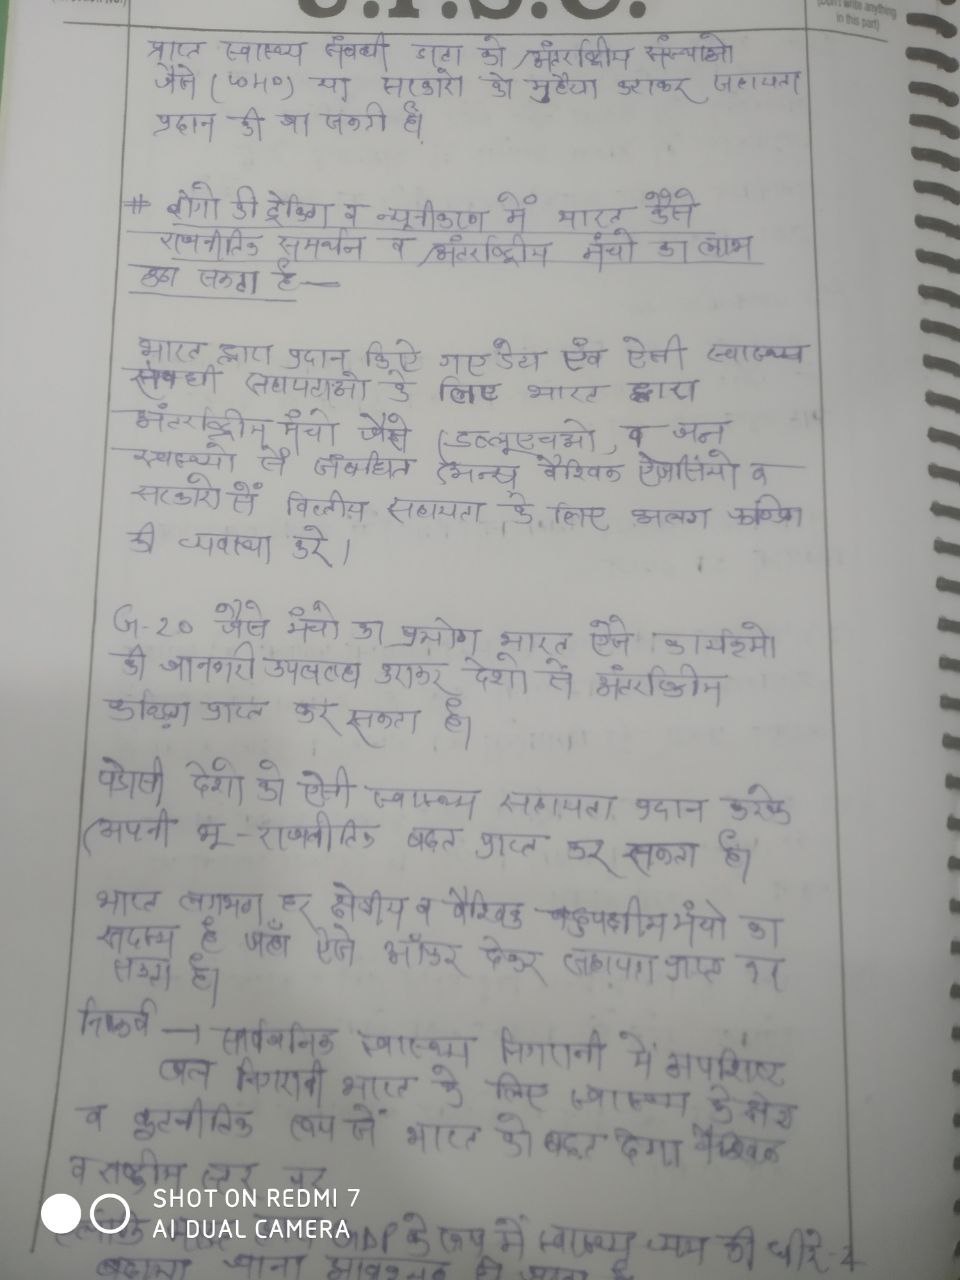 U.P.S.C.
(Don't write anything
in this part)
प्राप्त स्वास्थ्य संबंधी डाटा को अंतर्राष्ट्रीय संस्थाओ
जैसे (WHO) या सरकारों को मुहैया कराकर सहायता
प्रदान की जा सकती है।
# रोगो की ट्रेकिंग व न्यूनीकरण में भारत कैसे
राजनीतिक समर्थन व अंतर्राष्ट्रीय मंचो का लाभ
उठा सकता है —
भारत द्वारा प्रदान किऐ गए डेटा एंव ऐसी स्वास्थ्य
संबधी सहायताओ के लिए भारत द्वारा
अंतर्राष्ट्रीय मंचो जैसे (डब्लूएचओ) व जन
स्वास्थ्यो से संबधित अन्य वैश्विक ऐजेंसियो व
सरकारो से वित्तीय सहायता के लिए अलग फण्डिंग
की व्यवस्था करे।
G-20 जैसे मंचो का प्रयोग भारत ऐसे कार्यक्रमो
की जानकारी उपलब्ध कराकर देशो से अंतर्राष्ट्रीय
फण्डिंग प्राप्त कर सकता है।
पडोसी देशो को ऐसी स्वास्थ्य सहायता प्रदान करके
अपनी भू-राजनीतिक बढत प्राप्त कर सकता है।
भारत लगभग हर क्षेत्रीय व वैश्विक बहुपक्षीय मंचो का
सदस्य है जहाँ ऐसे ऑफर देकर सहायता प्राप्त कर
सकता है।
निष्कर्ष → सार्वजनिक स्वास्थ्य निगरानी में अपशिष्ट
जल निगरानी भारत के लिए स्वास्थ्य के क्षेत्र
व कूटनीतिक रूप से भारत को बढत देगा वैश्विक
व राष्ट्रीय स्तर पर
GDP के रूप में स्वास्थ्य व्यय को धीरे-2
बढाया जाना आवश्यक
SHOT ON REDMI 7
AI DUAL CAMERA